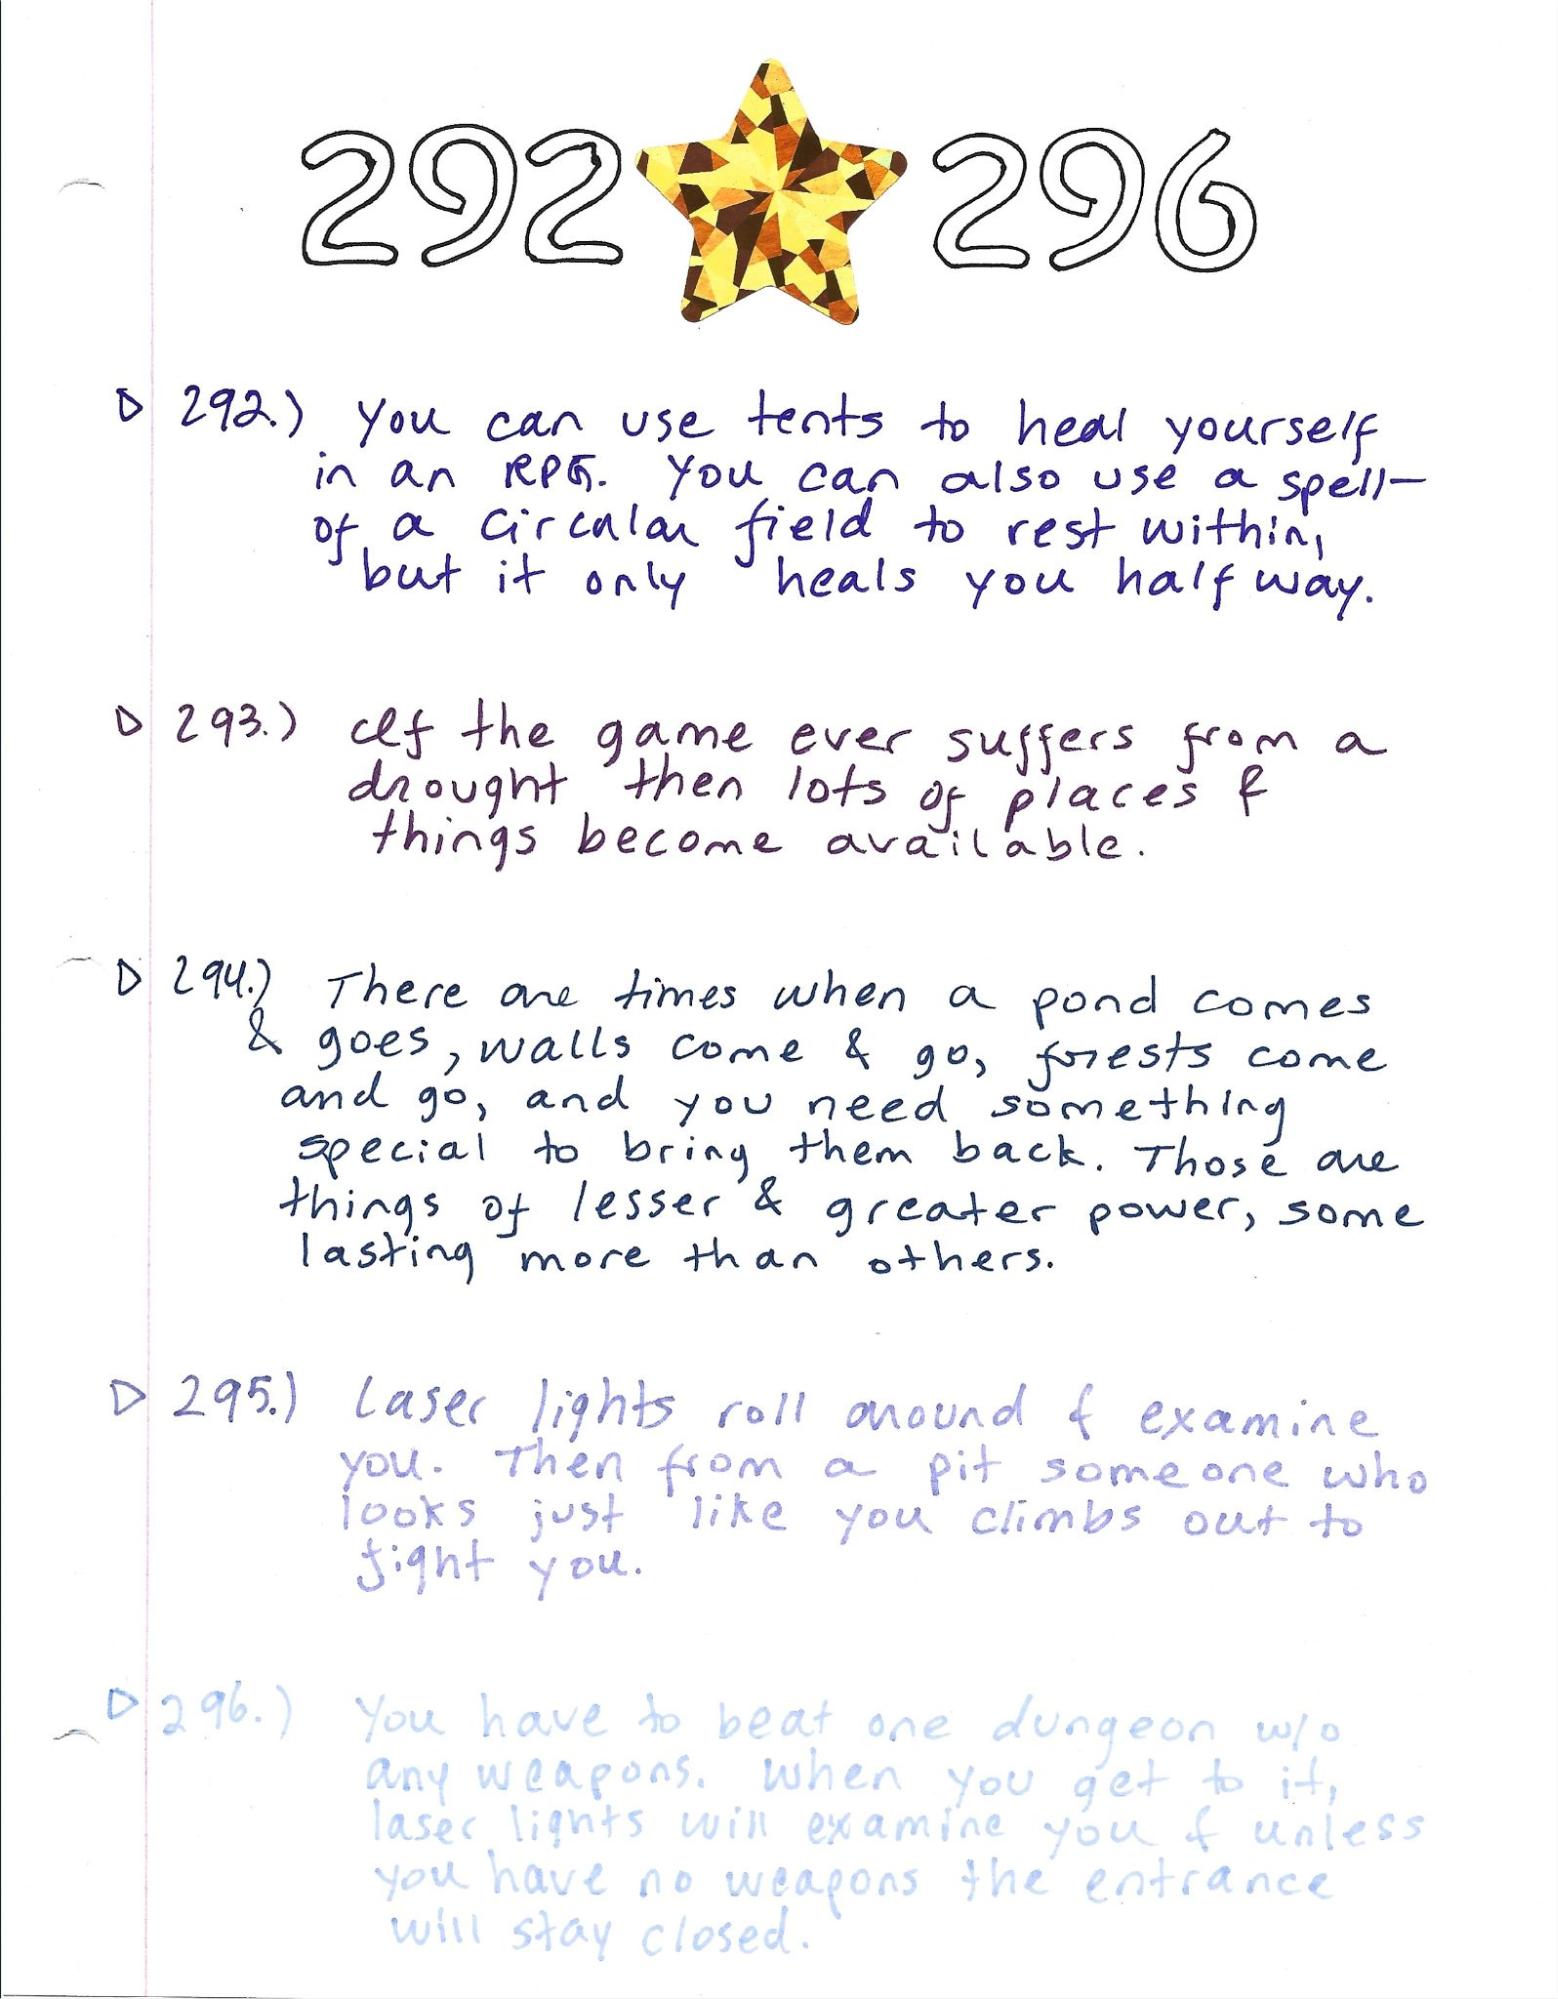 292 296
292.) You can use tents to heal yourself
in an RPG. You can also use a spell-
of a circular field to rest within,
but it only heals you half way.
293.) If the game ever suffers from a
drought then lots of places &
things become available.
294.) There are times when a pond comes
& goes, walls come & go, forests come
and go, and you need something
special to bring them back. Those are
things of lesser & greater power, some
lasting more than others.
295.) Laser lights roll around & examine
you. Then from a pit someone who
looks just like you climbs out to
fight you.
296.) You have to beat one dungeon w/o
any weapons. When you get to it,
laser lights will examine you & unless
you have no weapons the entrance
will stay closed.